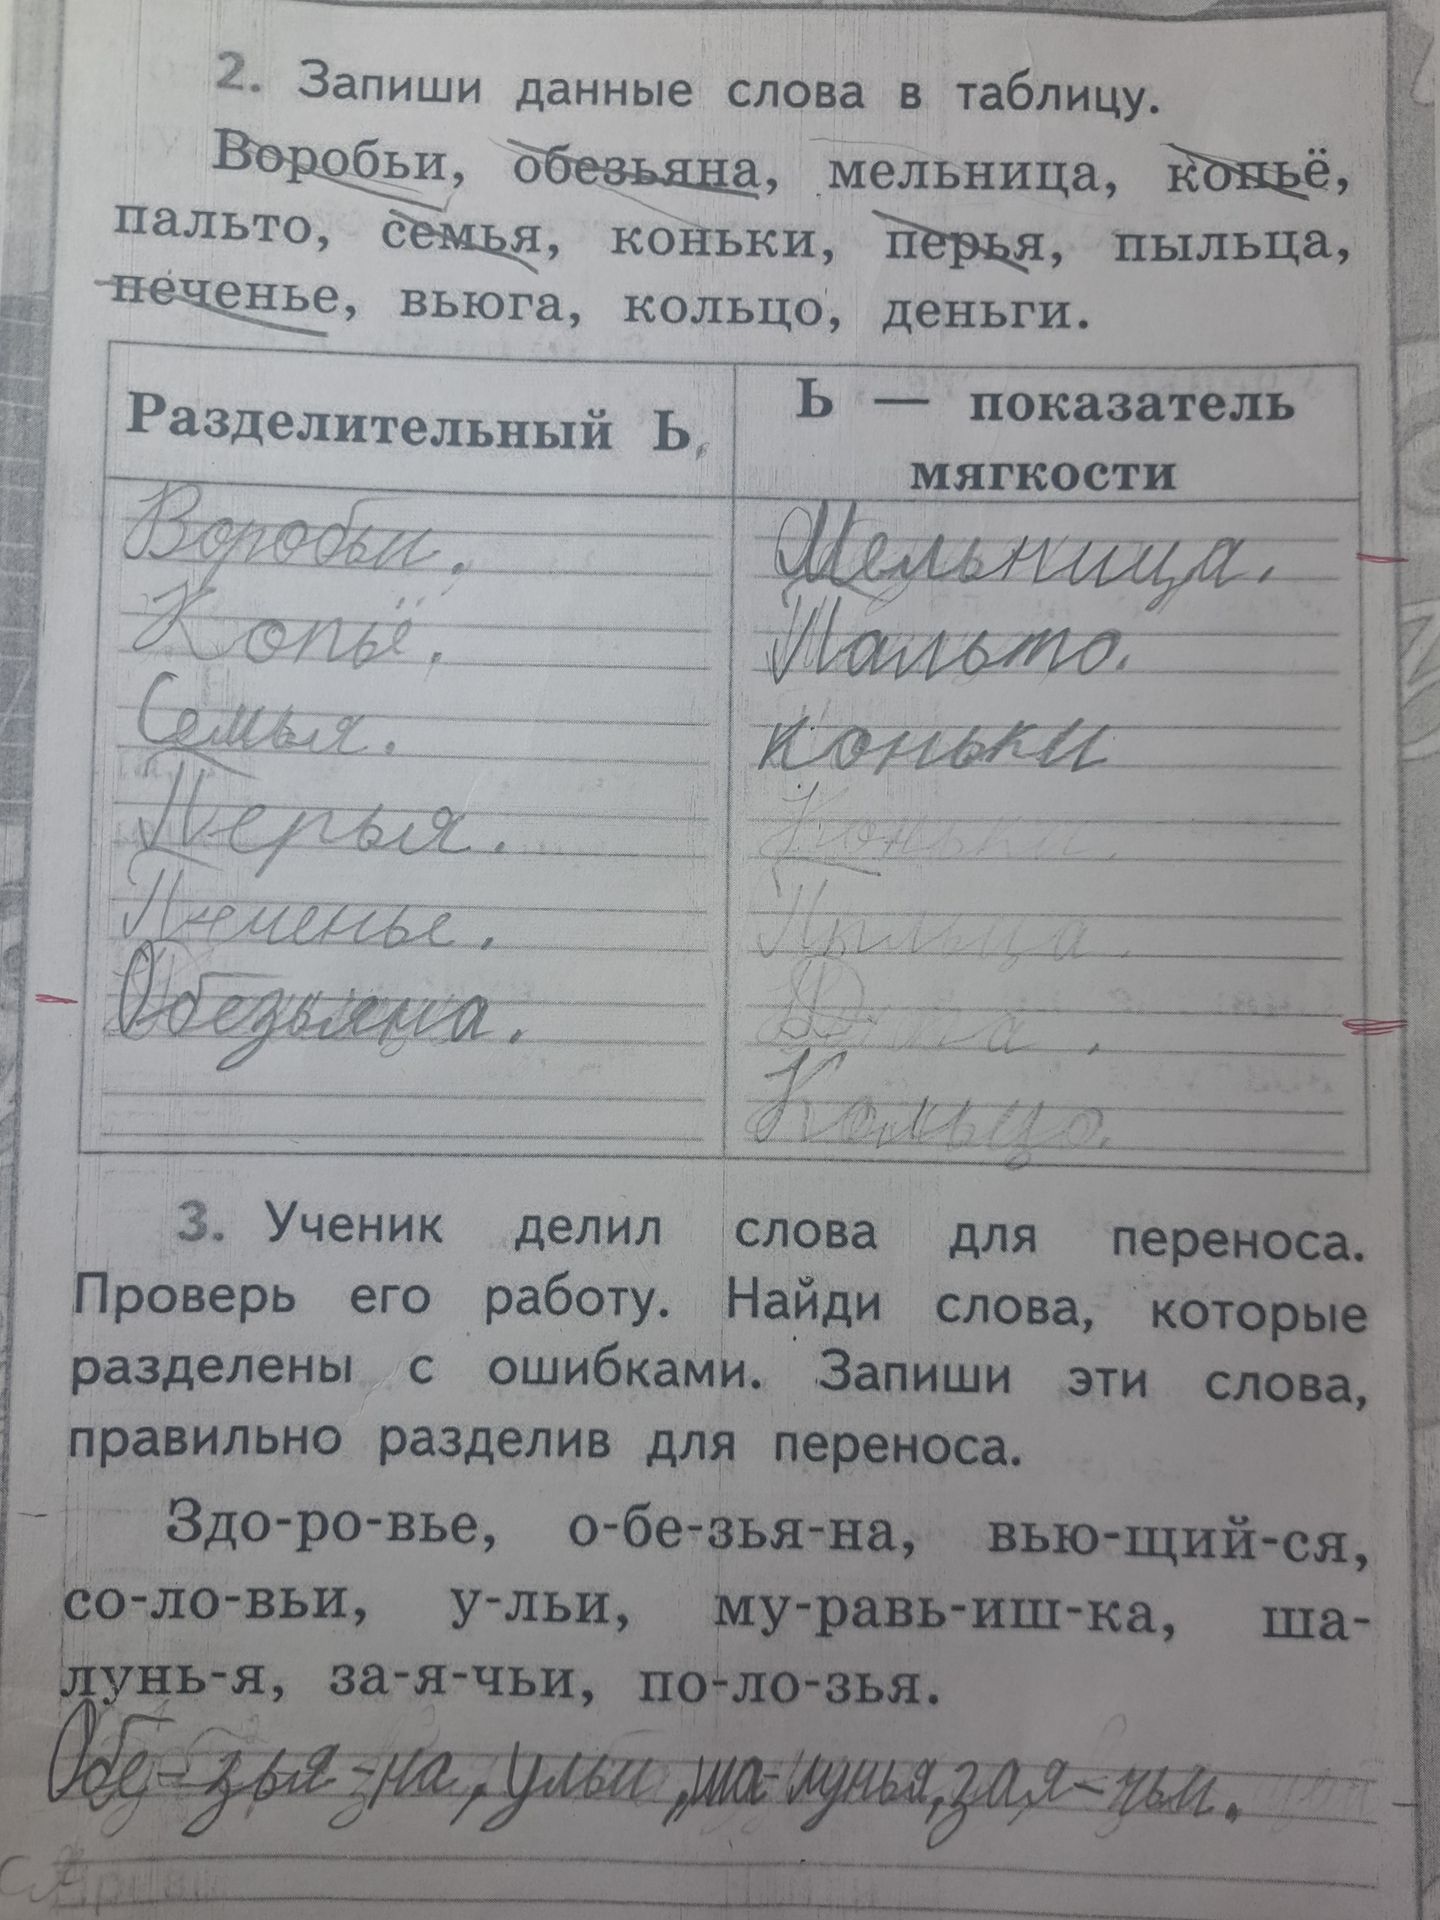 2. Запиши данные слова в таблицу.
Воробьи, обезьяна, мельница, копьё,
пальто, семья, коньки, перья, пыльца,
печенье, вьюга, кольцо, деньги.
Разделительный Ь
Ь — показатель
мягкости
Воробьи.
Копьё.
Семья.
Перья.
Печенье.
Обезьяна.
Мельница.
Пальто.
коньки
Коньки.
Пыльца.
Кольцо.
3. Ученик делил слова для переноса.
Проверь его работу. Найди слова, которые
разделены с ошибками. Запиши эти слова,
правильно разделив для переноса.
Здо-ро-вье, о-бе-зья-на, вью-щий-ся,
со-ло-вьи, у-льи, му-равь-иш-ка, ша-
лунь-я, за-я-чьи, по-ло-зья.
Обе-зья-на, ульи, ша-лунья, зая-чьи.